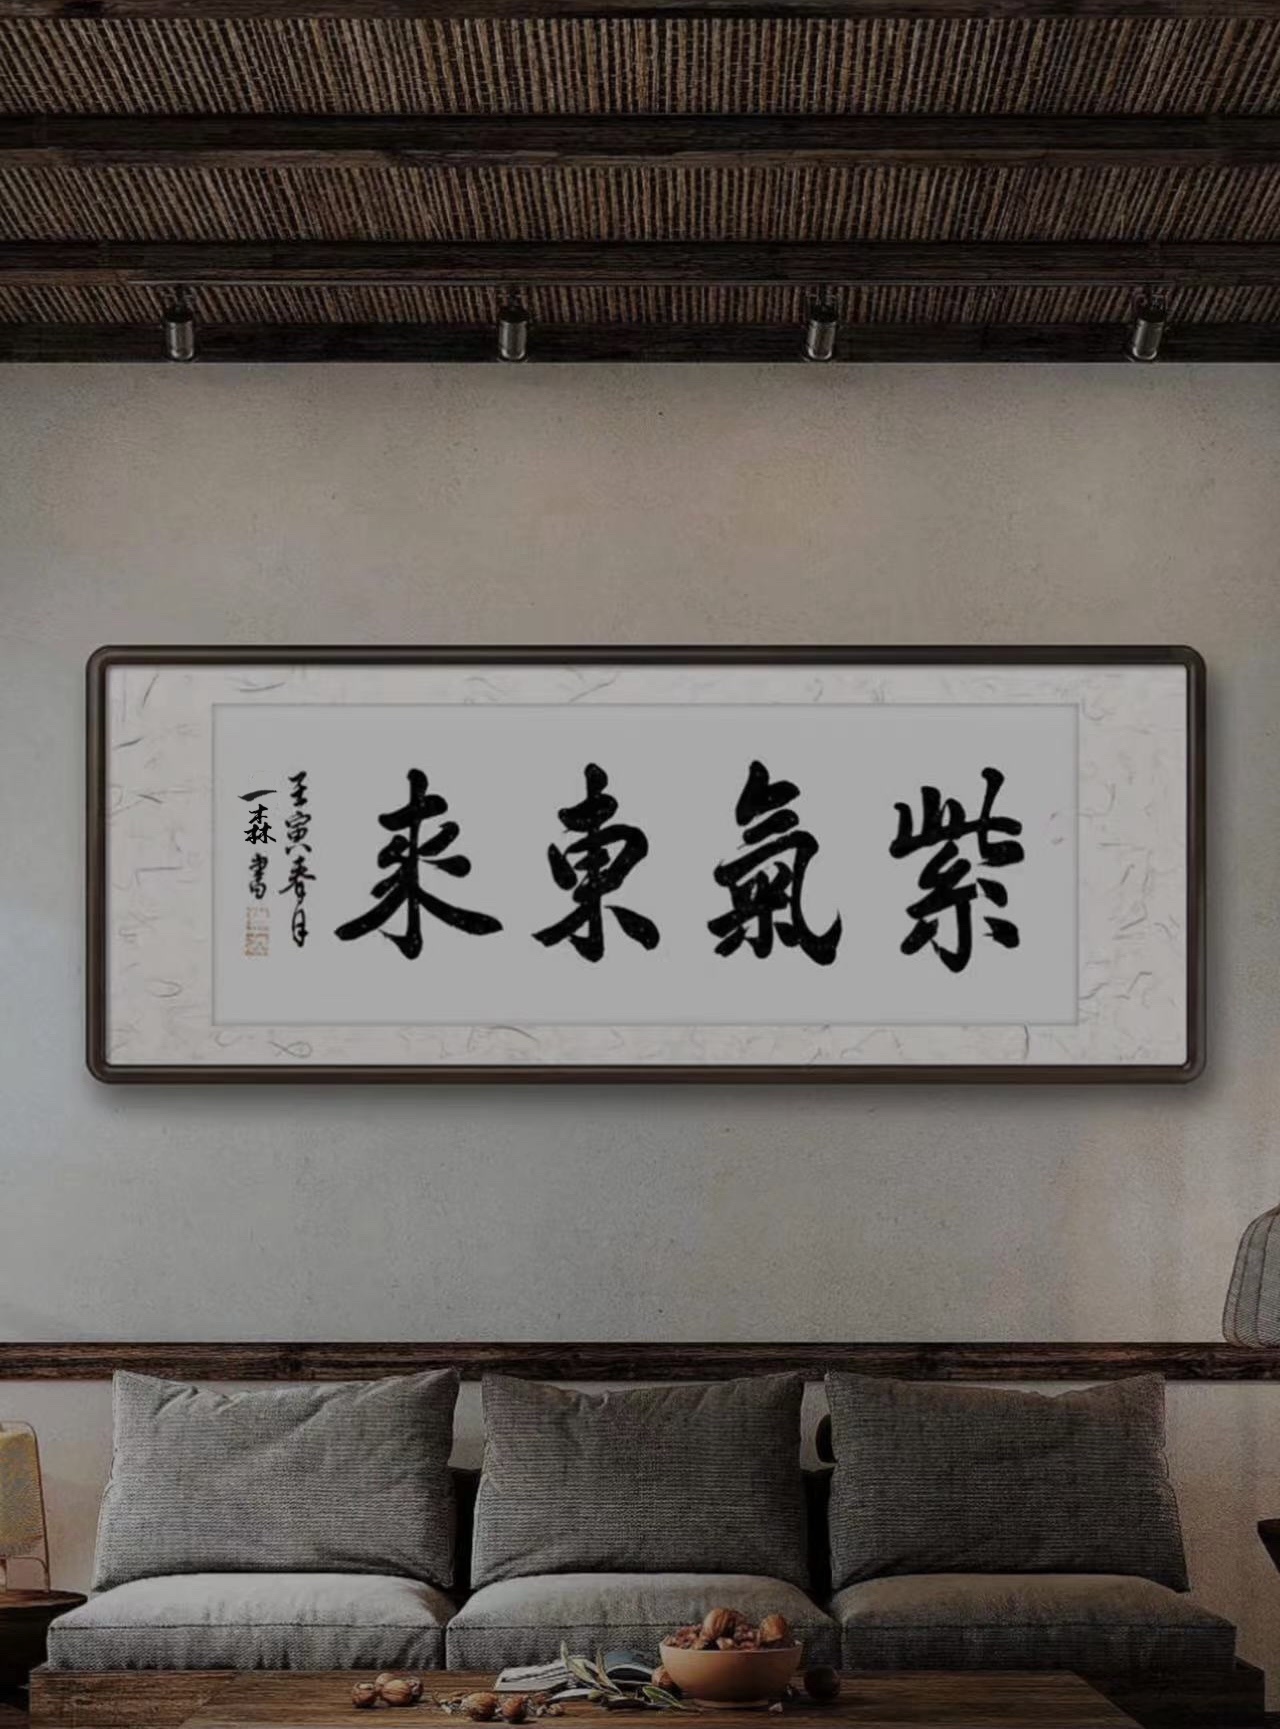 紫氣東來
壬寅春月
一森書